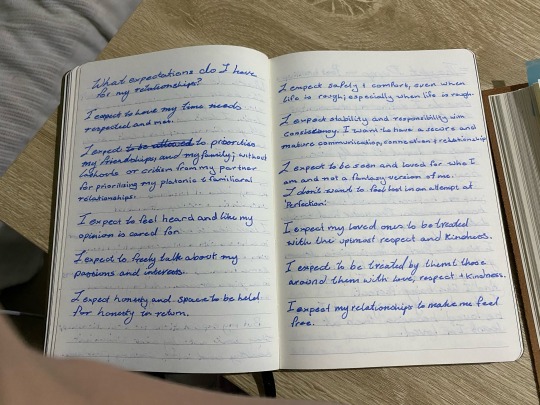 What expectations do I have
for my relationships?
I expect to have my time needs
respected and met.
I expect to be allowed to prioritise
my friendships and my family; without
or critism from my partner
for prioritising my platonic & familiaral
relationships.
I expect to feel heard and like my
opinion is cared for.
I expect to freely talk about my
passions and interests.
I expect honesty and space to be held
for honesty in return.
I expect safety & comfort, even when
life is rough; especially when life is rough.
I expect stability and responsibility with
consistency. I want to have a secure and
mature communication, connection & relationship
I expect to be seen and loved for who I
am and not a fantasy version of me.
I don't want to feel lost in an attempt at
'Perfection'.
I expect my loved ones to be treated
with the upmost respect and kindness.
I expect to be treated by them & those
around them with love, respect & kindness.
I expect my relationships to make me feel
free.